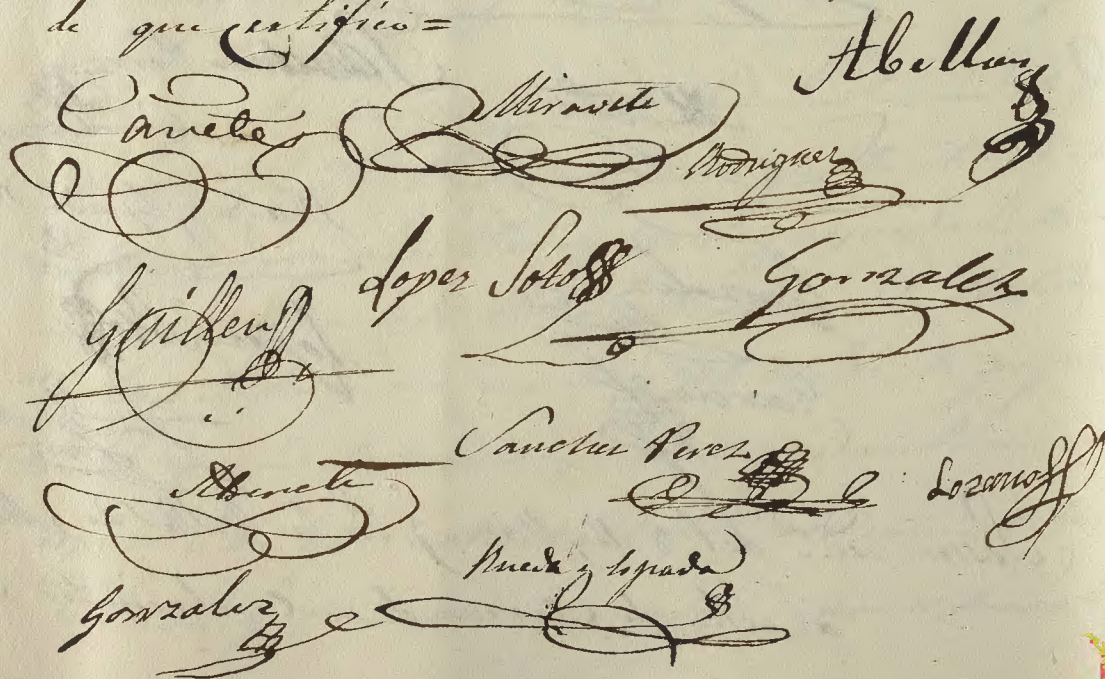 de que certifico=
Abellan
Cañete Miravete
Rodriguez
Guillen Lopez Soto Gonzalez
Sanchez Perez Lozano
Abenete
Rueda y
Gonzalez